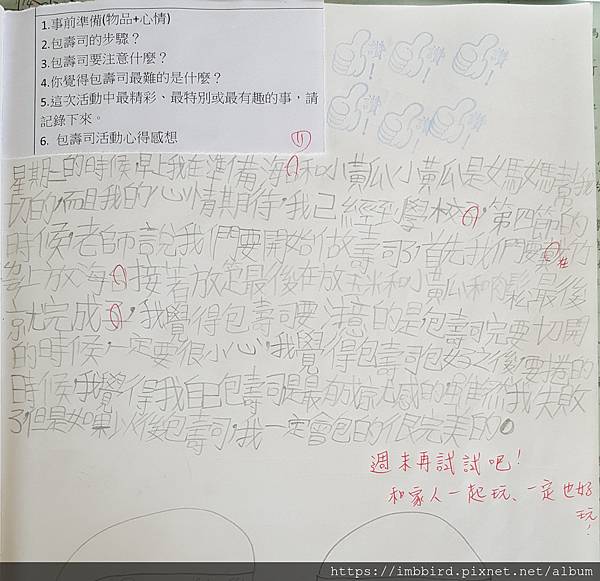 1.事前準備(物品+心情)
2.包壽司的步驟？
3.包壽司要注意什麼？
4.你覺得包壽司最難的是什麼？
5.這次活動中最精彩、最特別或最有趣的事，請
記錄下來。
6. 包壽司活動心得感想
讚! 讚! 讚!
讚! 讚! 讚!
星期二的時候，早上我在準備海和小黃瓜，小黃瓜是媽媽幫我
切的，而且我的心情期待，我已經到學校，第四節的
時候，老師說我們要開始做壽司了，首先我們要在竹
上放海，接著放完最後在放玉米和小黃瓜和肉鬆，最後
就完成了，我覺得包壽司要注意的是包壽司完要切開
的時候，一定要很小心，我覺得包壽司包好之後要捲的
時候，我覺得我自己包壽司是最有成京尤感的，雖然我失敗
了，但是如果以後包壽司，我一定會包的很完美的。
週末再試試吧!
和家人一起玩、一定也好
玩!
https://imbbird.pixnet.net/album